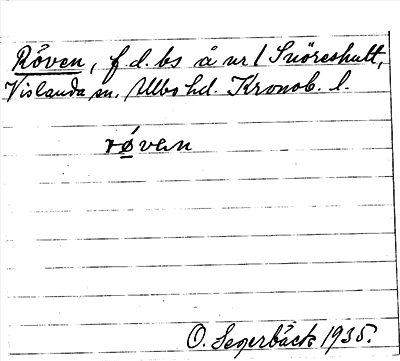 Röven, f.d. bs å nr 1 Snöreshult,
Vislanda sn. Allbo hd. Kronob. l.
røven
O. Segerbäck 1935.